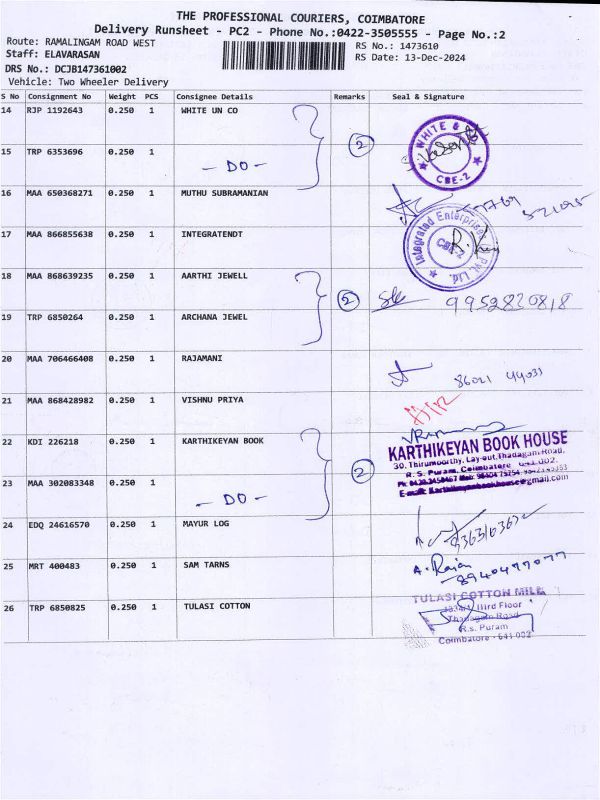 THE PROFESSIONAL COURIERS, COIMBATORE
Delivery Runsheet - PC2 - Phone No.:0422-3505555 - Page No.:2
Route: RAMALINGAM ROAD WEST
RS No.: 1473610
Staff: ELAVARASAN
RS Date: 13-Dec-2024
DRS No.: DCJB147361002
Vehicle: Two Wheeler Delivery
S No Consignment No Weight PCS Consignee Details Remarks Seal & Signature
14 RJP 1192643 0.250 1 WHITE UN CO
WHITE &
CBE-2
2
15 TRP 6353696 0.250 1
- DO -
16 MAA 650368271 0.250 1 MUTHU SUBRAMANIAN
17 MAA 866855638 0.250 1 INTEGRATENDT
Integrated Enterprises
CBE-2
Pvt. Ltd.
18 MAA 868639235 0.250 1 AARTHI JEWELL
2 9952820818
19 TRP 6850264 0.250 1 ARCHANA JEWEL
20 MAA 706466408 0.250 1 RAJAMANI
86021 44031
21 MAA 868428982 0.250 1 VISHNU PRIYA
22 KDI 226218 0.250 1 KARTHIKEYAN BOOK
KARTHIKEYAN BOOK HOUSE
30, Thirumoorthy, Lay-out, Thadagam Road,
R. S. Puram, Coimbatore - 641 002.
E-mail: Karthikeyanbookhouse@gmail.com
2
23 MAA 302083348 0.250 1
- DO -
24 EDQ 24616570 0.250 1 MAYUR LOG
25 MRT 400483 0.250 1 SAM TARNS
A. Raja
8940477077
26 TRP 6850825 0.250 1 TULASI COTTON
TULASI COTTON MILK
IIIrd Floor
Thadagam Road
R.s. Puram
Coimbatore - 641 002